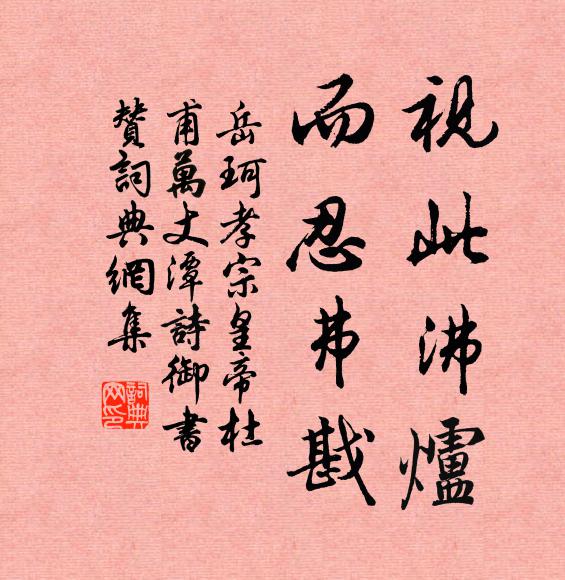 視此沸爐
而忍弗戡
岳珂孝宗皇帝杜
甫萬丈潭詩御書
贊詞典網集
詞典
网印